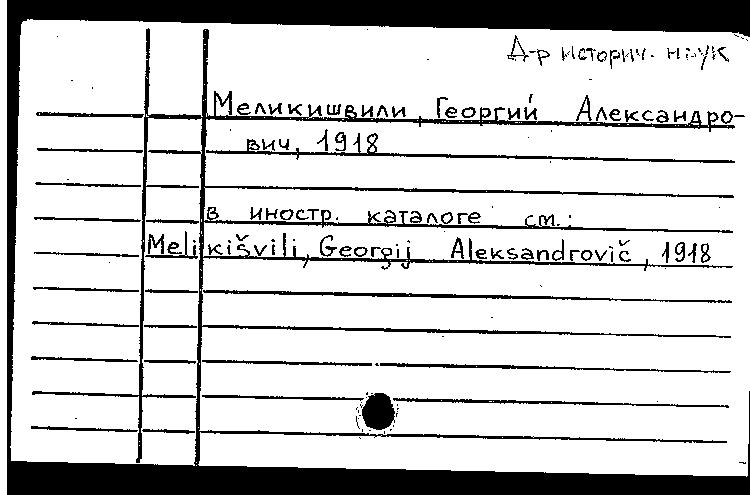 Д-р историч. наук
Меликишвили, Георгий Александро-
вич, 1918
в иностр. каталоге см.:
Melikišvili, Georgij Aleksandrovič, 1918